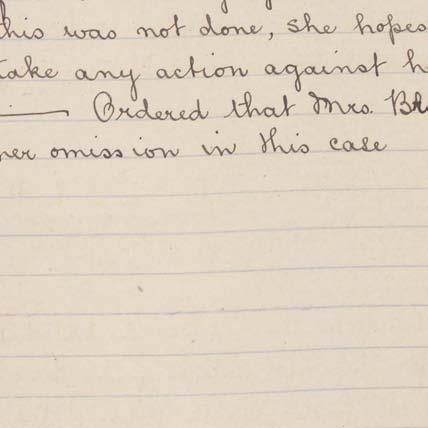 this was not done, she hopes
take any action against h
Ordered that Mrs. Br
her omission in this case